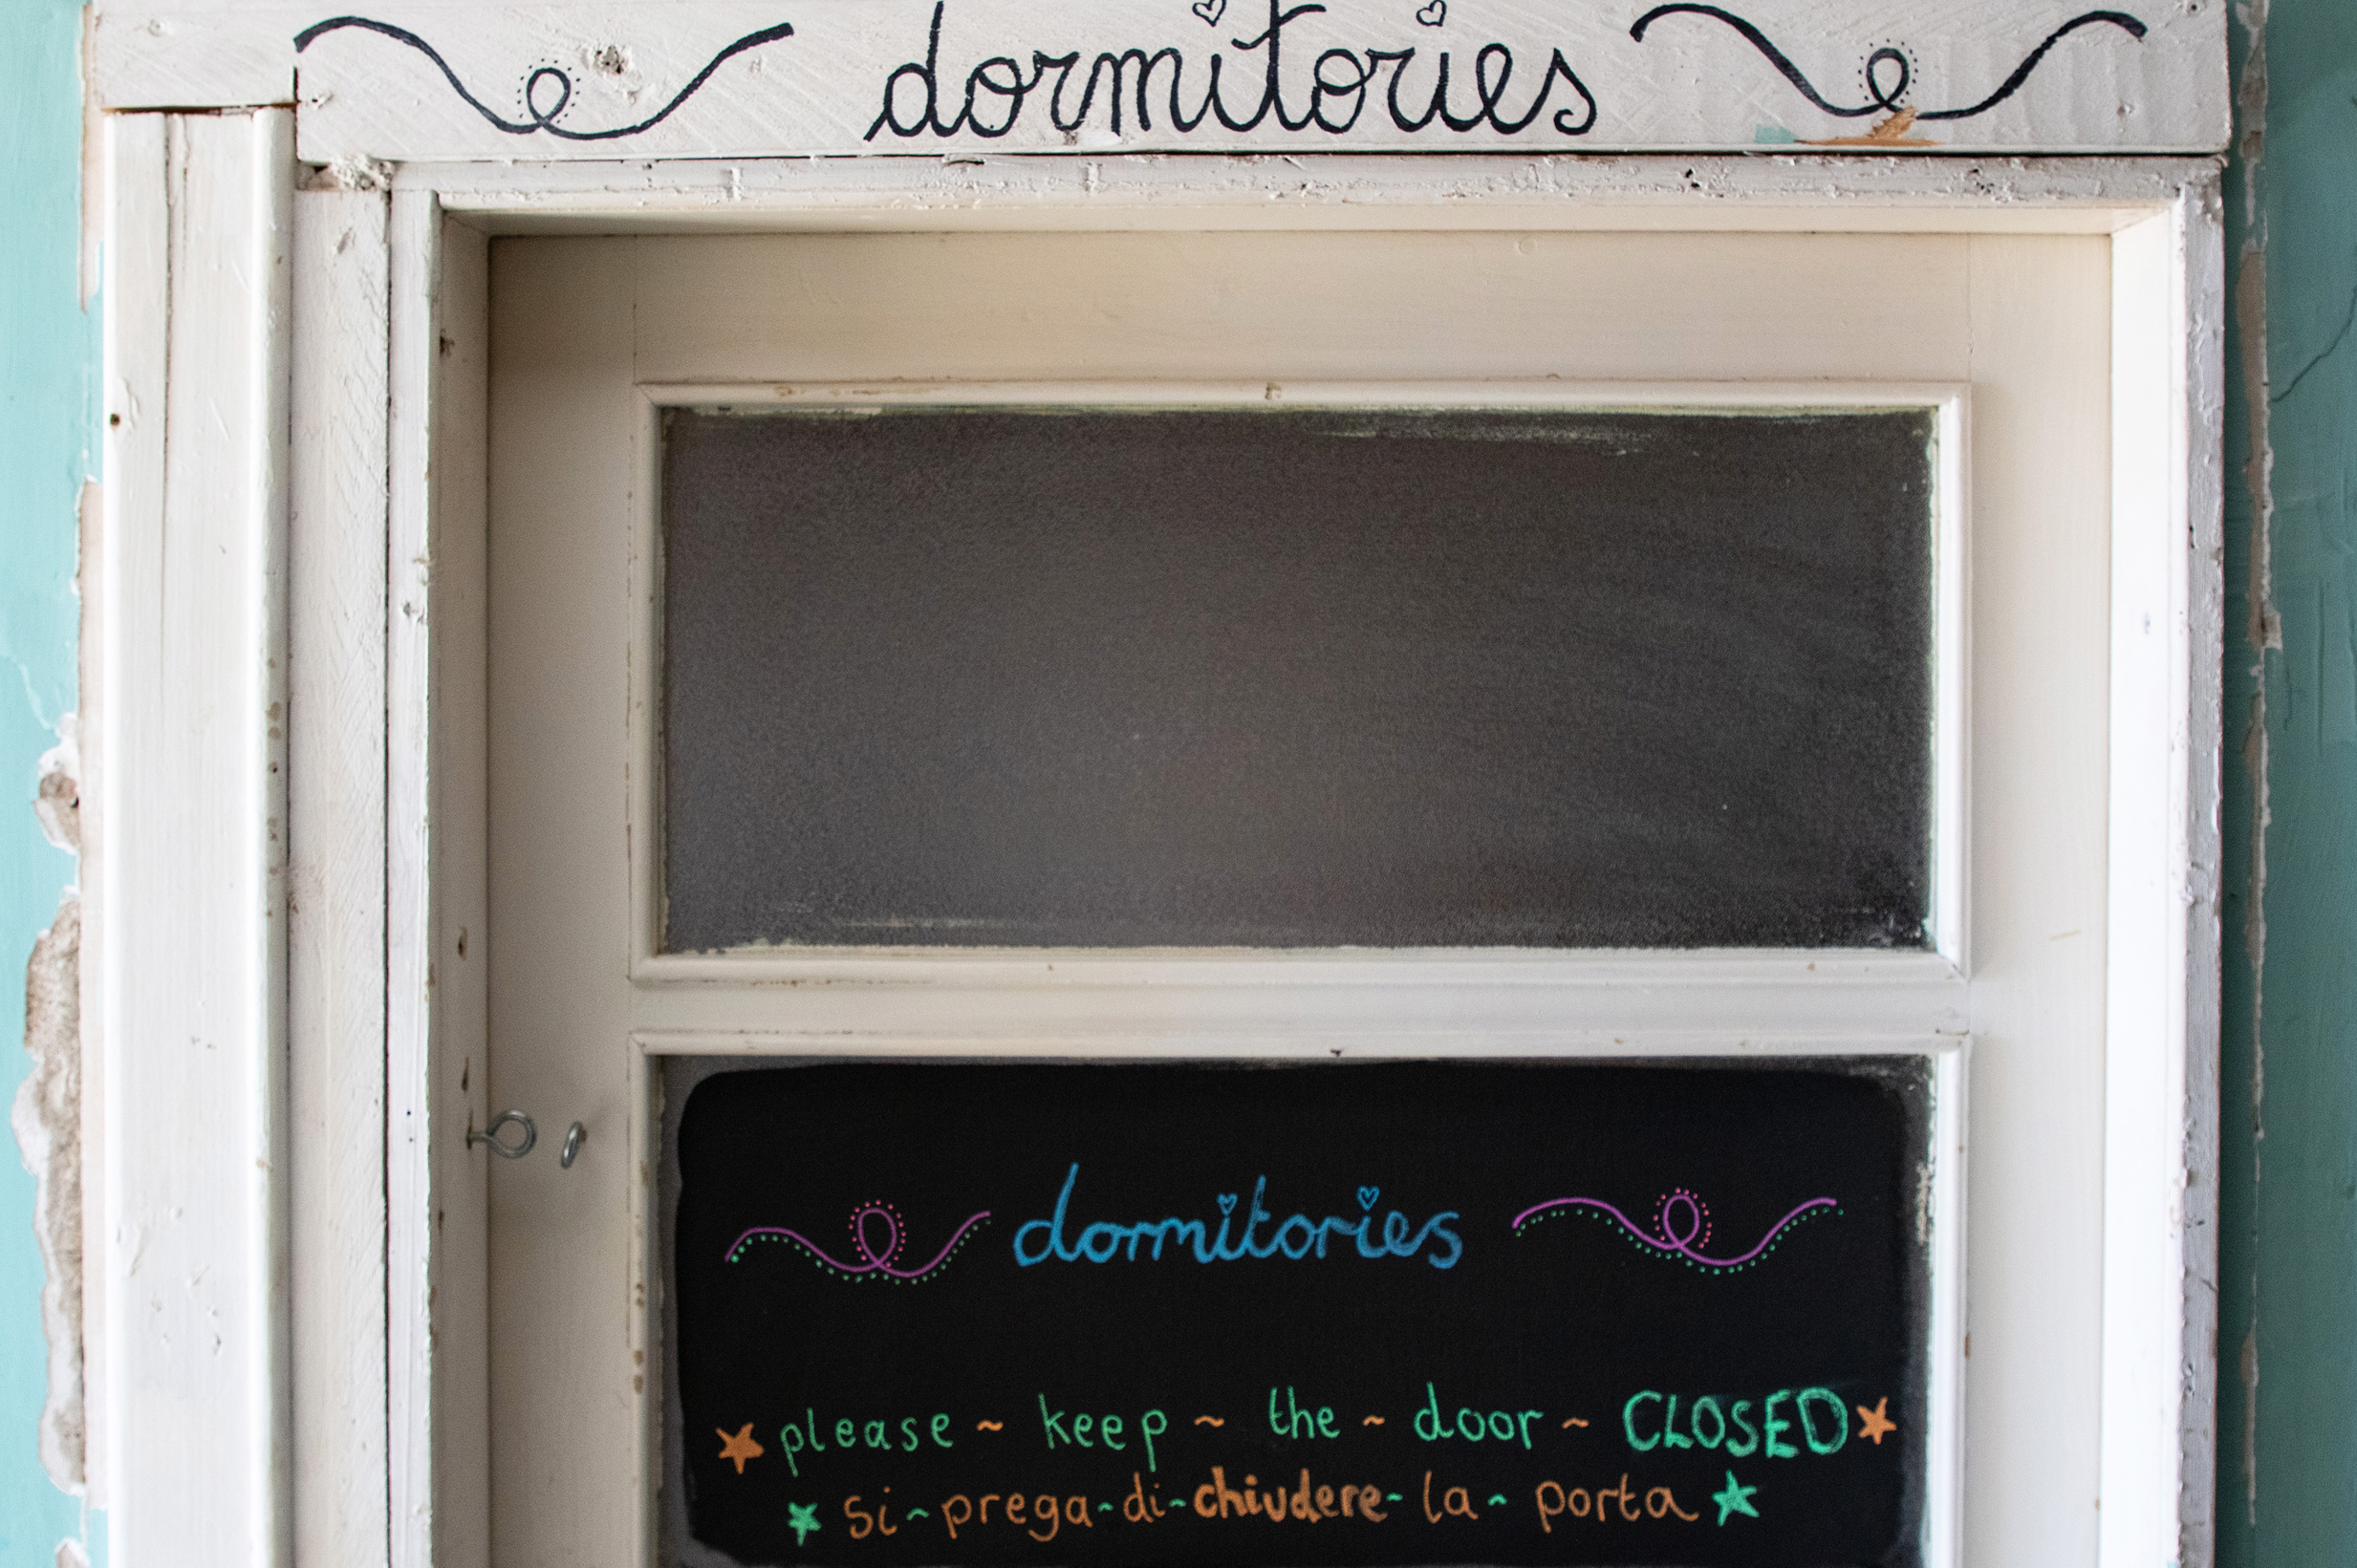 dormitories
dormitories
please ~ keep ~ the ~ door ~ CLOSED
si ~ prega ~ di ~ chiudere ~ la ~ porta